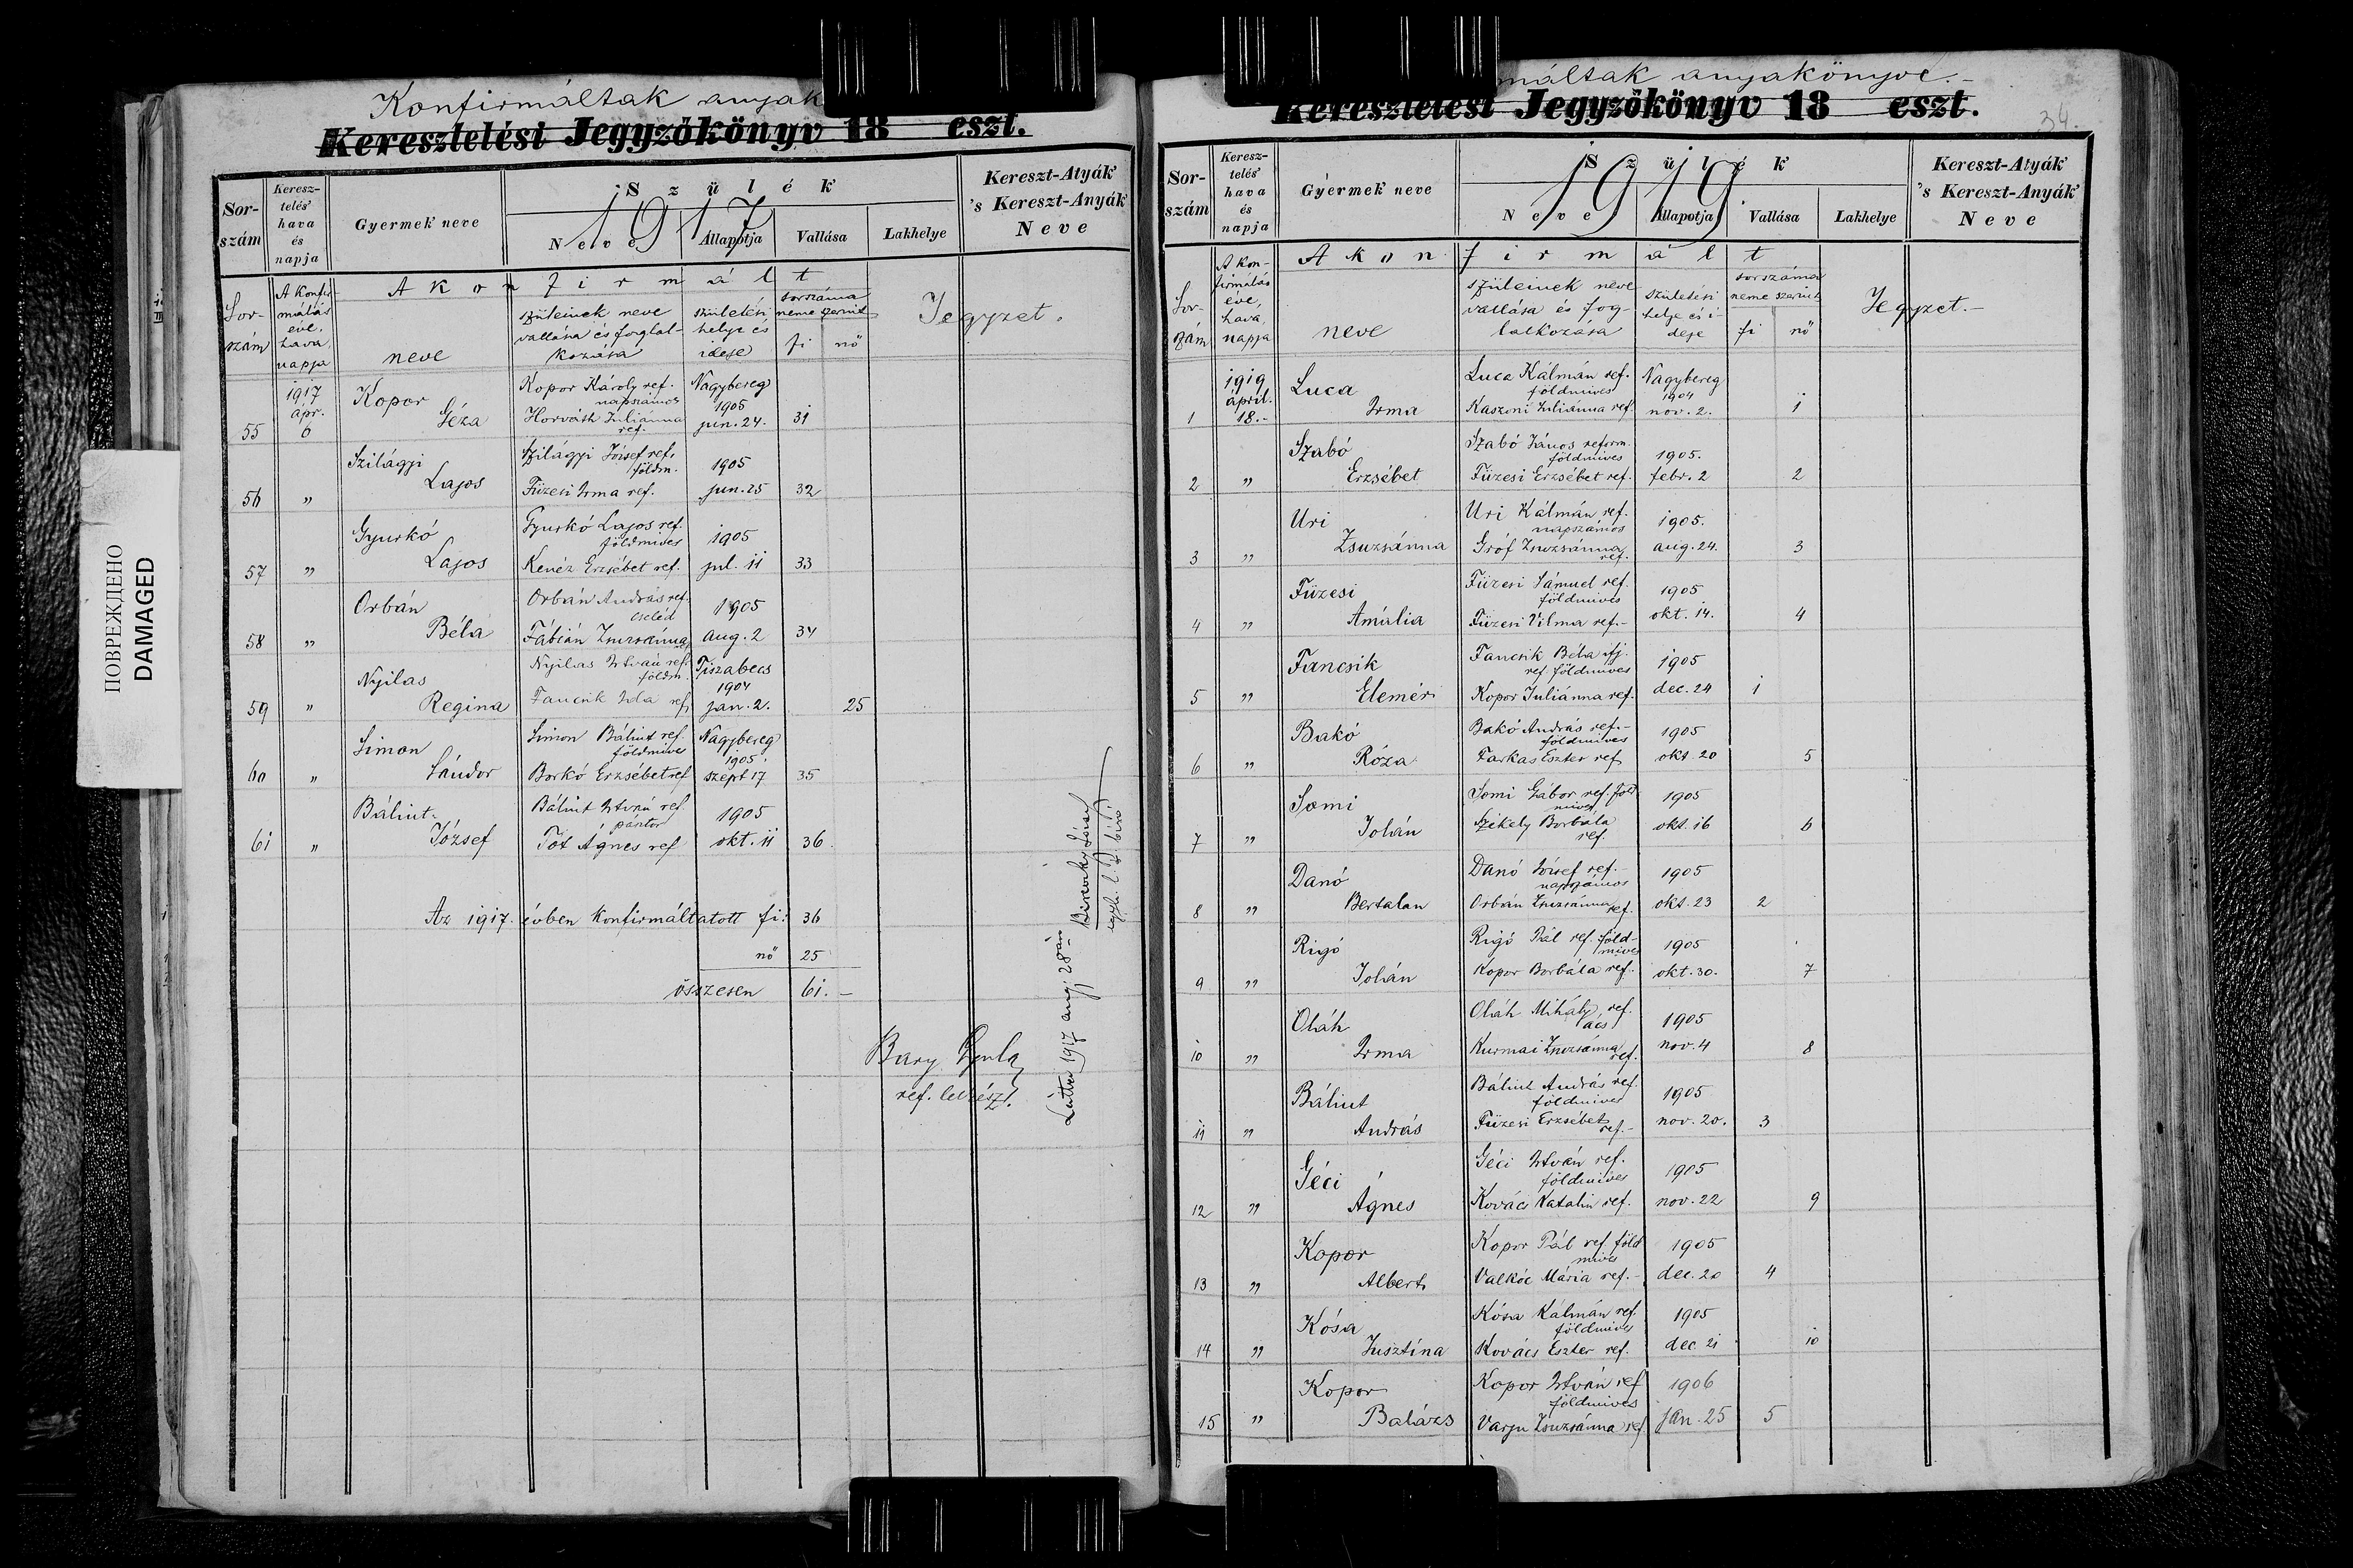 ПОВРЕЖДЕНО
DAMAGED
Konfirmáltak anyak
Keresztelési Jegyzőkönyv 18 eszt.
Sor-
szám
Keresz-
telés'
hava
és
napja
Gyermek neve
Szülék
1917
Neve
Állapotja
Vallása
Lakhelye
Kereszt-Atyák
's Kereszt-Anyák
Neve
A konfirmált
Sor-
szám
A konfir-
málás
éve,
hava,
napja
neve
szüleinek neve
vallása és foglal-
kozása
születési
helye és
ideje
sorszáma
neme szerint
fi nő
Jegyzet.
1917
ápr.
55 6 Kopor Géza
Kopor Károly ref.
napszámos
Horváth Juliánna
ref.
Nagybereg
1905
jun. 24. 31
56 " Szilágyi Lajos
Szilágyi József ref.
földm.
Füzesi Irma ref.
1905
jun. 25 32
57 " Gyurkó Lajos
Gyurkó Lajos ref.
földmives
Kenéz Erzsébet ref.
1905
jul. 11 33
58 " Orbán Béla
Orbán András ref.
cseléd
Fábián Zsuzsánna
1905
aug. 2 34
59 " Nyilas Regina
Nyilas István ref.
földm.
Fancsik Ida ref.
Tiszabecs
1904
jan. 2. 25
60 " Simon Sándor
Simon Bálint ref.
földmives
Borkó Erzsébet ref
Nagybereg
1905.
szept 17 35
61 " Bálint József
Bálint István ref.
pásztor
Tót Ágnes ref
1905
okt. 11 36.
Az 1917. évben konfirmáltatott fi: 36
nő 25
összesen 61.-
Bary Gyula
ref. lelkész.
Láttam 1917 aug. 28-án
máltak anyakönyve.-
Keresztelési Jegyzőkönyv 18 eszt.
34.
Sor-
szám
Keresz-
telés'
hava
és
napja
Gyermek neve
Szülék
1919
Neve
Állapotja
Vallása
Lakhelye
Kereszt-Atyák
's Kereszt-Anyák
Neve
A konfirmált
Sor-
szám
A kon-
firmálás
éve,
hava,
napja
neve
szüleinek neve
vallása és fog-
lalkozása
születési
helye és i-
deje
sorszáma
neme szerint
fi nő
Jegyzet.-
1919
ápril.
1 18.- Luca Irma
Luca Kálmán ref.
földmives
Kaszoni Juliánna ref.
Nagybereg
1904
nov. 2. 1
2 " Szabó Erzsébet
Szabó János reform.
földmives
Füzesi Erzsébet ref.
1905.
febr. 2 2
3 " Uri Zsuzsánna
Uri Kálmán ref.
napszámos
Gróf Zsuzsánna
ref.
1905.
aug. 24. 3
4 " Füzesi Amália
Füzesi Sámuel ref.
földmives
Füzesi Vilma ref.-
1905
okt. 14. 4
5 " Fancsik Elemér
Fancsik Béla ifj.
ref. földmives
Kopor Juliánna ref.
1905
dec. 24 1
6 " Bakó Róza
Bakó András ref.-
földmives
Farkas Eszter ref
1905
okt. 20 5
7 " Somi Jolán
Somi Gábor ref. föld
mives
Székely Borbála
ref.
1905
okt. 16 6
8 " Danó Bertalan
Danó József ref.-
napszámos
Orbán Zsuzsánna
ref.
1905
okt. 23 2
9 " Rigó Jolán
Rigó Pál ref. föld-
mives
Kopor Borbála ref.
1905
okt. 30. 7
10 " Oláh Irma
Oláh Mihály, ref.
ács
Kurmai Zsuzsánna
ref.
1905
nov. 4 8
11 " Bálint András
Bálint András ref.
földmives
Füzesi Erzsébet
ref.-
1905
nov. 20. 3
12 " Géci Ágnes
Géci István ref.
földmives
Kovács Katalin ref.
1905
nov. 22 9
13 " Kopor Albert
Kopor Pál ref. föld
mives
Valkóc Mária ref.-
1905
dec. 20 4
14 " Kósa Jusztina
Kósa Kálmán ref.
földmives
Kovács Eszter ref.
1905
dec. 21 10
15 " Kopor Balázs
Kopor István ref
földmives
Varju Zsuzsánna ref.
1906
jan. 25 5